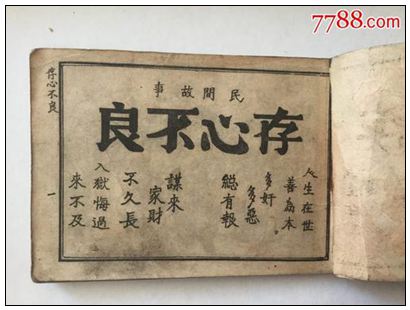 7788.com
存心不良
民間故事
存心不良
人生在世
善為本
多奸
多惡
總有報
謀來
家財
不久長
入獄悔過
來不及
一